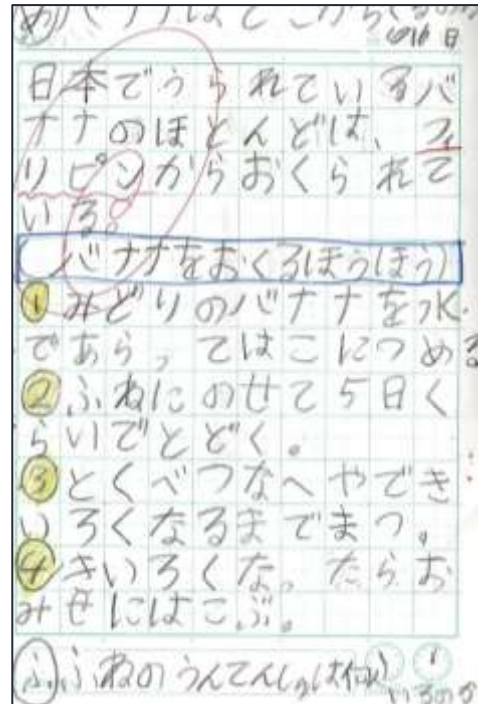 め バナナはどこからくるのか
6/16 日
日本でうられているバ
ナナのほとんどは、フィ
リピンからおくられて
いる。
バナナをおくるほうほう
①みどりのバナナを水
であらってはこにつめる
②ふねにのせて5日く
らいでとどく。
③とくべつなへやでき
いろくなるまでまつ。
④きいろくなったらお
みせにはこぶ。
ふ ふねのうんてんしゅは何人
いるのか